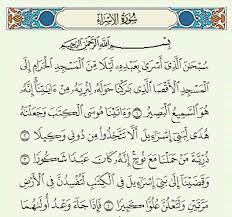 سُورَةُ الإِسْرَاءِ
بِسْمِ ٱللَّهِ ٱلرَّحْمَٰنِ ٱلرَّحِيمِ
سُبْحَٰنَ ٱلَّذِىٓ أَسْرَىٰ بِعَبْدِهِۦ لَيْلًا مِّنَ ٱلْمَسْجِدِ ٱلْحَرَامِ إِلَى
ٱلْمَسْجِدِ ٱلْأَقْصَا ٱلَّذِى بَٰرَكْنَا حَوْلَهُۥ لِنُرِيَهُۥ مِنْ ءَايَٰتِنَآ إِنَّهُۥ
هُوَ ٱلسَّمِيعُ ٱلْبَصِيرُ ١ وَءَاتَيْنَا مُوسَى ٱلْكِتَٰبَ وَجَعَلْنَٰهُ
هُدًى لِّبَنِىٓ إِسْرَٰٓءِيلَ أَلَّا تَتَّخِذُوا۟ مِن دُونِى وَكِيلًا ٢
ذُرِّيَّةَ مَنْ حَمَلْنَا مَعَ نُوحٍ إِنَّهُۥ كَانَ عَبْدًا شَكُورًا ٣
وَقَضَيْنَآ إِلَىٰ بَنِىٓ إِسْرَٰٓءِيلَ فِى ٱلْكِتَٰبِ لَتُفْسِدُنَّ فِى ٱلْأَرْضِ
مَرَّتَيْنِ وَلَتَعْلُنَّ عُلُوًّا كَبِيرًا ٤ فَإِذَا جَآءَ وَعْدُ أُولَىٰهُمَا